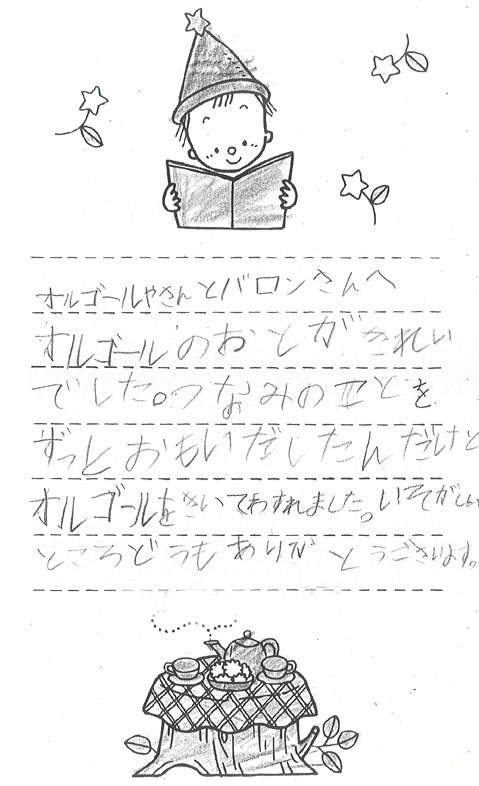 オルゴールやさんとバロンさんへ
オルゴールのおとがきれい
でした。つなみのことを
ずっとおもいだしたんだけど
オルゴールをきいてわすれました。いそがしい
ところどうもありがとうございます。